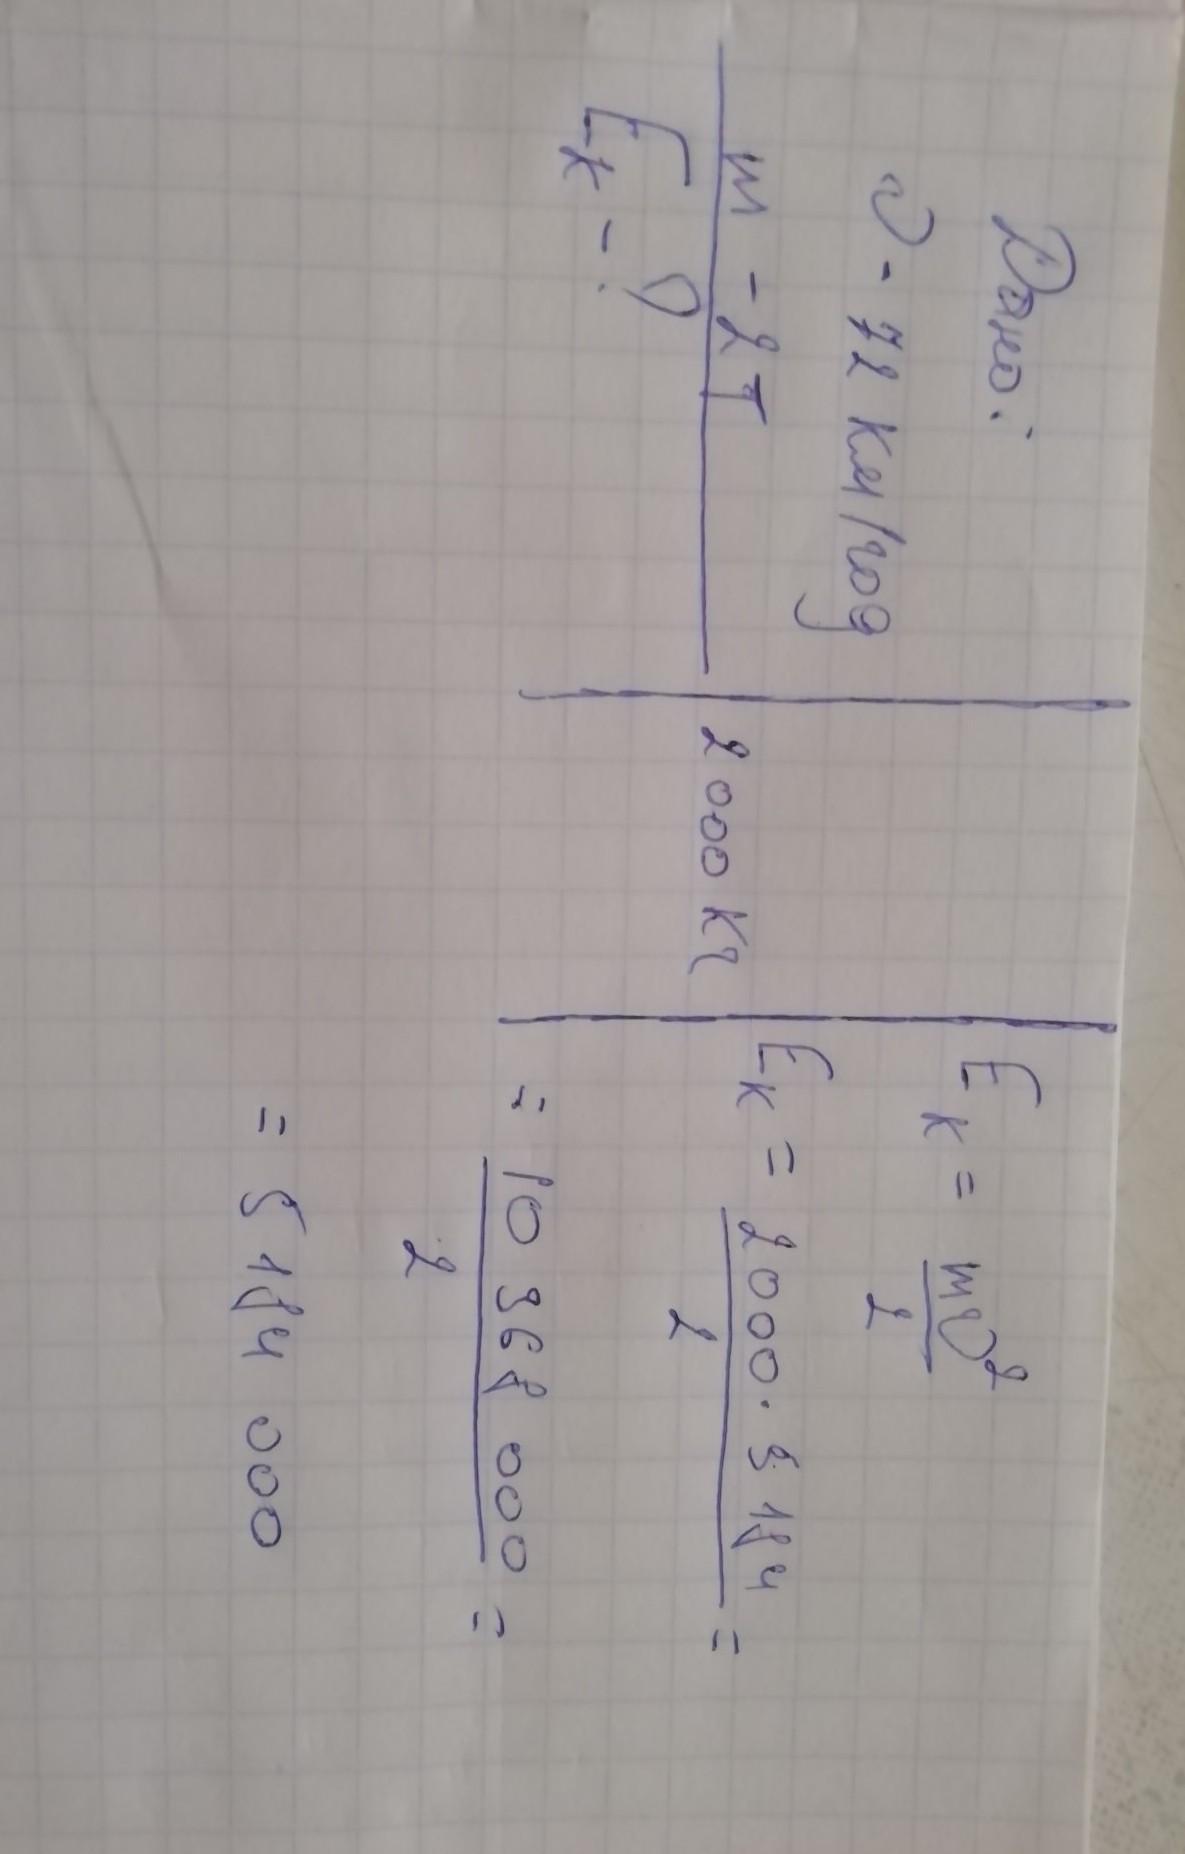 Дано:
υ - 72 км/год
m - 2 т
Eк - ?
2000 кг
Eк = mυ²/2
Eк = 2000 · 5184/2 =
= 10 368 000/2 =
= 5 184 000